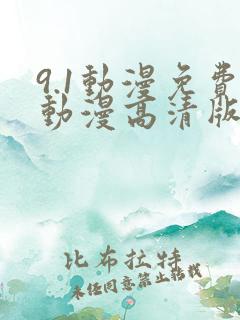 9.1動漫免費
動漫高清版
比布拉特
未经同意禁止转载